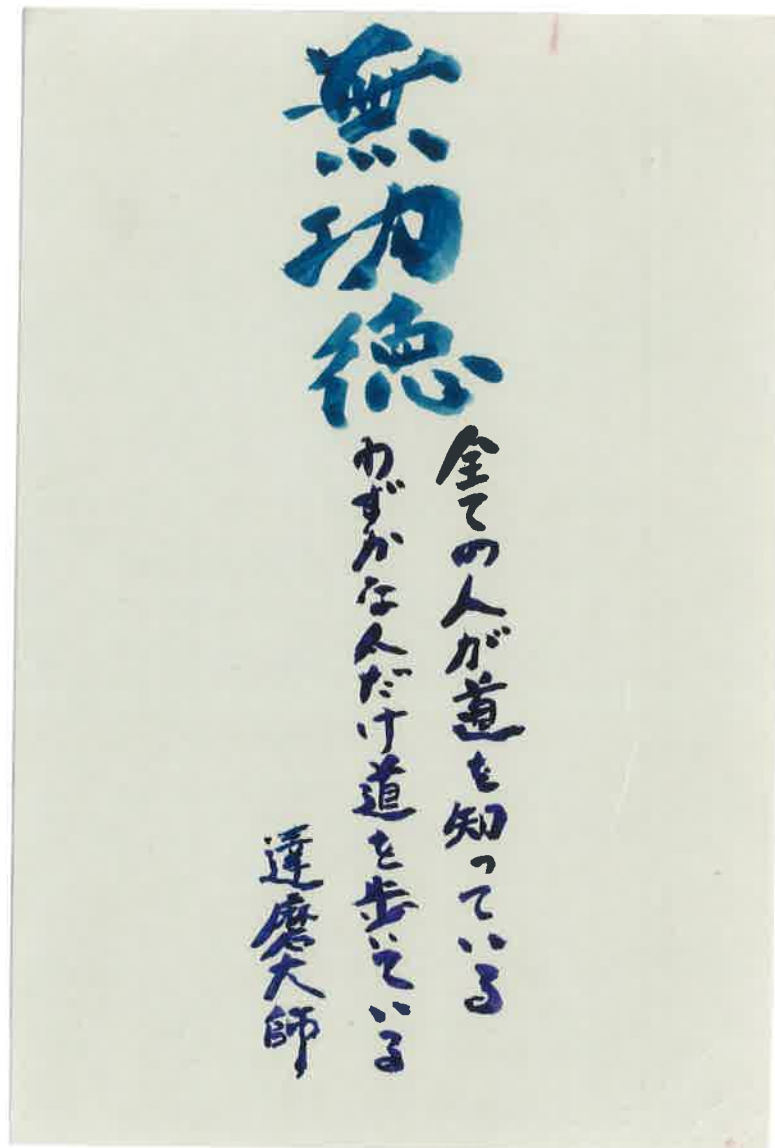 無功徳
全ての人が道を知っている
わずかな人だけ道を歩いている
達磨大師